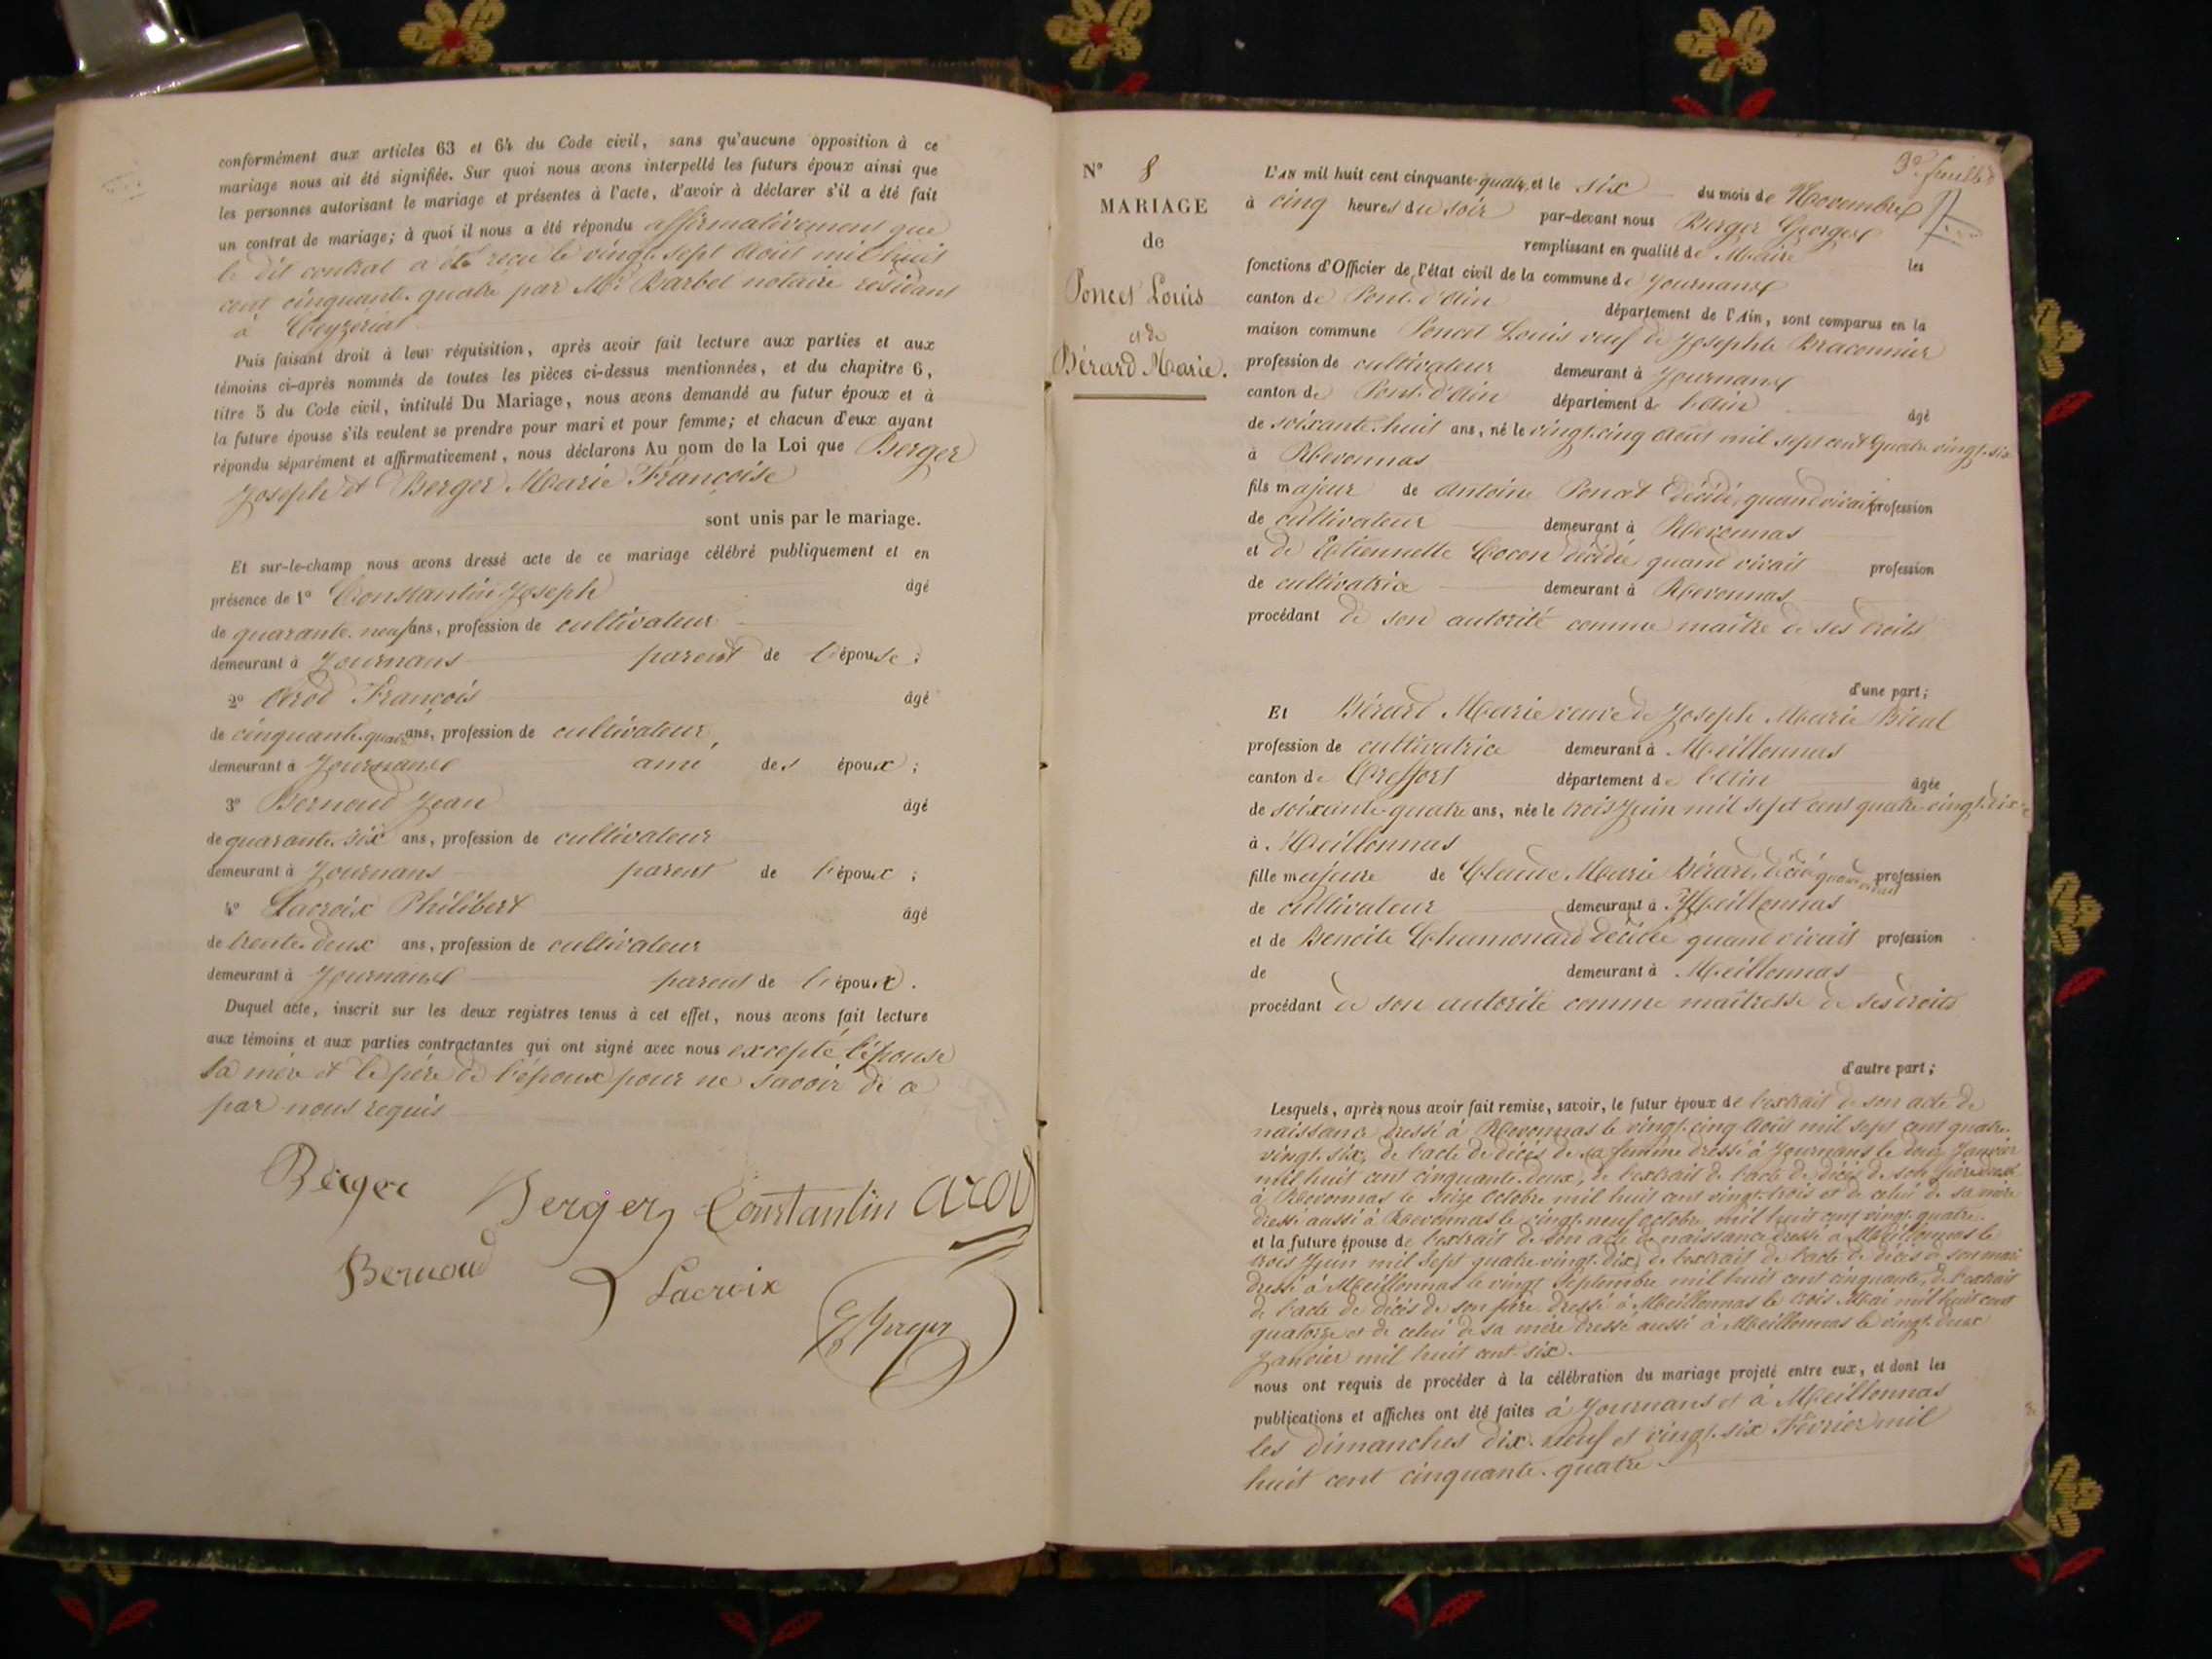 conformément aux articles 63 et 64 du Code civil, sans qu'aucune opposition à ce
mariage nous ait été signifiée. Sur quoi nous avons interpellé les futurs époux ainsi que
les personnes autorisant le mariage et présentes à l'acte, d'avoir à déclarer s'il a été fait
un contrat de mariage; à quoi il nous a été répondu affirmativement que
le dit contrat a été reçu le vingt-sept Août mil huit
cent cinquante-quatre par Me Barbet notaire résidant
à Ceyzériat
Puis faisant droit à leur réquisition, après avoir fait lecture aux parties et aux
témoins ci-après nommés de toutes les pièces ci-dessus mentionnées, et du chapitre 6,
titre 5 du Code civil, intitulé Du Mariage, nous avons demandé au futur époux et à
la future épouse s'ils veulent se prendre pour mari et pour femme; et chacun d'eux ayant
répondu séparément et affirmativement, nous déclarons Au nom de la Loi que Berger
Joseph et Berger Marie Françoise
sont unis par le mariage.
Et sur-le-champ nous avons dressé acte de ce mariage célébré publiquement et en
présence de 1° Constantin Joseph âgé
de quarante-neuf ans, profession de cultivateur
demeurant à Journans parent de l'épouse;
2° Arod François âgé
de cinquante-quatre ans, profession de cultivateur,
demeurant à Journans ami des époux;
3° Bernoud Jean âgé
de quarante-six ans, profession de cultivateur
demeurant à Journans parent de l'époux;
4° Lacroix Philibert âgé
de trente-deux ans, profession de cultivateur
demeurant à Journans parent de l'époux.
Duquel acte, inscrit sur les deux registres tenus à cet effet, nous avons fait lecture
aux témoins et aux parties contractantes qui ont signé avec nous excepté l'épouse
sa mère et le père de l'époux pour ne savoir de ce
par nous requis
Berger Berger Constantin Arod
Bernoud Lacroix
G Berger
9e feuillet
N° 8
MARIAGE
de
Poncet Louis
et de
Bérard Marie.
L'AN mil huit cent cinquante-quatre, et le six du mois de Novembre
à cinq heures du soir par-devant nous Berger Georges
remplissant en qualité de Maire les
fonctions d'Officier de l'état civil de la commune de Journans
canton de Pont-d'Ain département de l'Ain, sont comparus en la
maison commune Poncet Louis veuf de Josephte Braconnier
profession de cultivateur demeurant à Journans
canton de Pont-d'Ain département de l'Ain âgé
de soixante-huit ans, né le vingt-cinq Août mil sept cent quatre-vingt-six
à Revonnas
fils majeur de Antoine Poncet décédé, quand vivait profession
de cultivateur demeurant à Revonnas
et de Etiennette Cocon décédée quand vivait profession
de cultivatrice demeurant à Revonnas
procédant de son autorité comme maître de ses droits
d'une part;
Et Bérard Marie veuve de Joseph Marie
profession de cultivatrice demeurant à Meillonnas
canton de Treffort département de l'Ain âgée
de soixante-quatre ans, née le trois Juin mil sept cent quatre-vingt-dix
à Meillonnas
fille majeure de Claude Marie Bérard, décédé quand vivait profession
de cultivateur demeurant à Meillonnas
et de Benoite Chamonard décédée quand vivait profession
de demeurant à Meillonnas
procédant de son autorité comme maîtresse de ses droits
d'autre part;
Lesquels, après nous avoir fait remise, savoir, le futur époux de l'extrait de son acte de
naissance dressé à Revonnas le vingt-cinq Août mil sept cent quatre-
vingt-six, de l'acte de décès de sa femme dressé à Journans le Janvier
mil huit cent cinquante-deux, de l'extrait de l'acte de décès de son père dressé
à Revonnas le seize Octobre mil huit cent vingt-trois et de celui de sa mère
dressé aussi à Revonnas le vingt-neuf Octobre mil huit cent vingt-quatre.
et la future épouse de l'extrait de son acte de naissance dressé à Meillonnas le
trois Juin mil sept quatre-vingt-dix, de l'extrait de l'acte de décès de son mari
dressé à Meillonnas le vingt Septembre mil huit cent cinquante, de l'extrait
de l'acte de décès de son père dressé à Meillonnas le trois Mai mil huit cent
quatorze et de celui de sa mère dressé aussi à Meillonnas le vingt-deux
Janvier mil huit cent-six.
nous ont requis de procéder à la célébration du mariage projeté entre eux, et dont les
publications et affiches ont été faites à Journans et à Meillonnas
les dimanches dix-neuf et vingt-six Février mil
huit cent cinquante-quatre